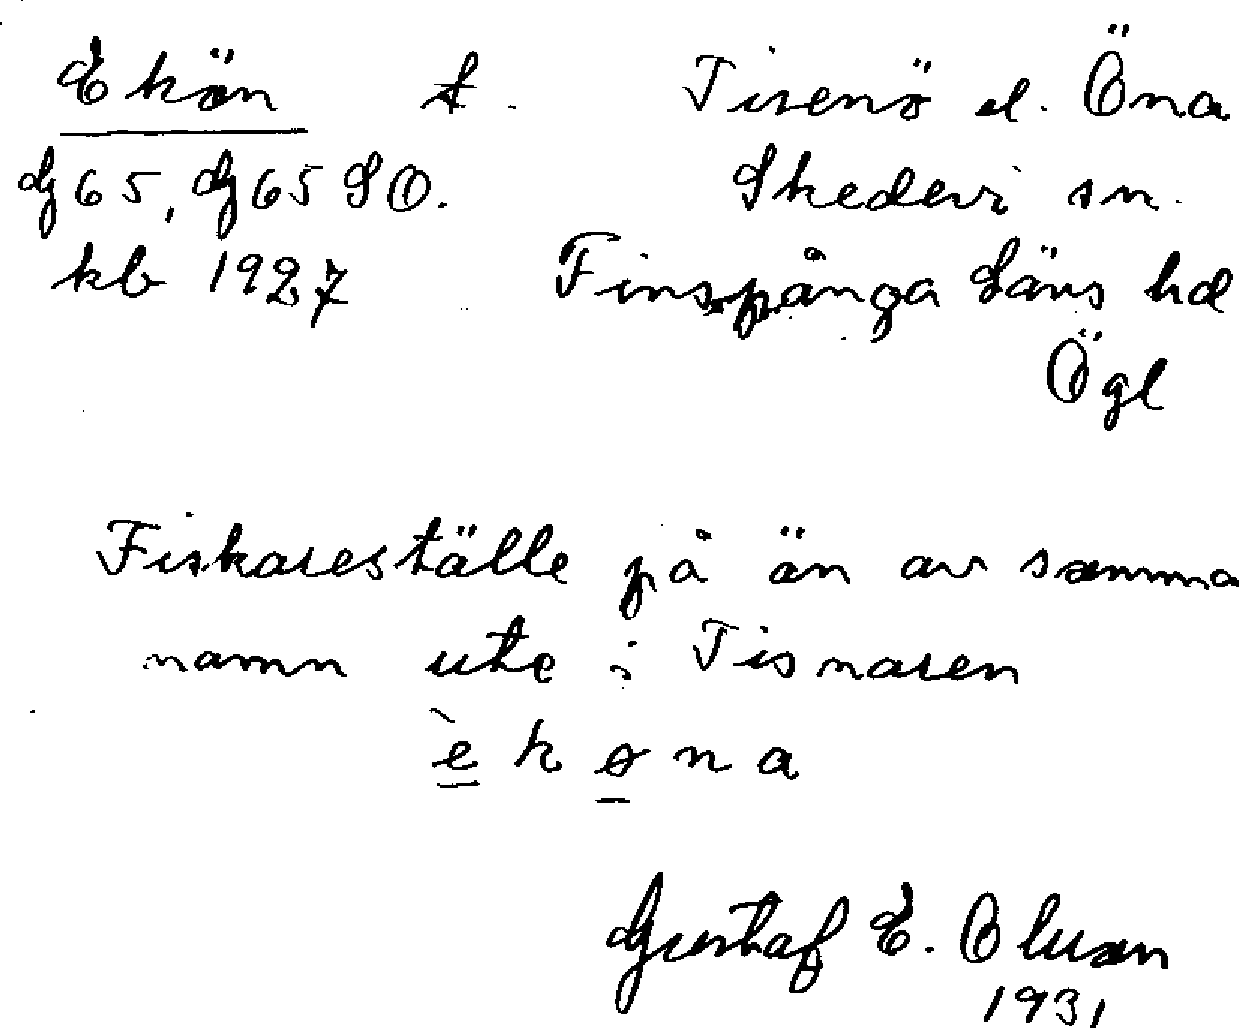 Ekön t. Tisenö el. Öna
Gg 65, Gg 65 SO. Skedevi sn.
kb 1927 Finspånga Läns hd
Ögl
Fiskareställe på än av samma
namn ute i Tisnaren
èkøna
Gustaf E. Oluson
1931